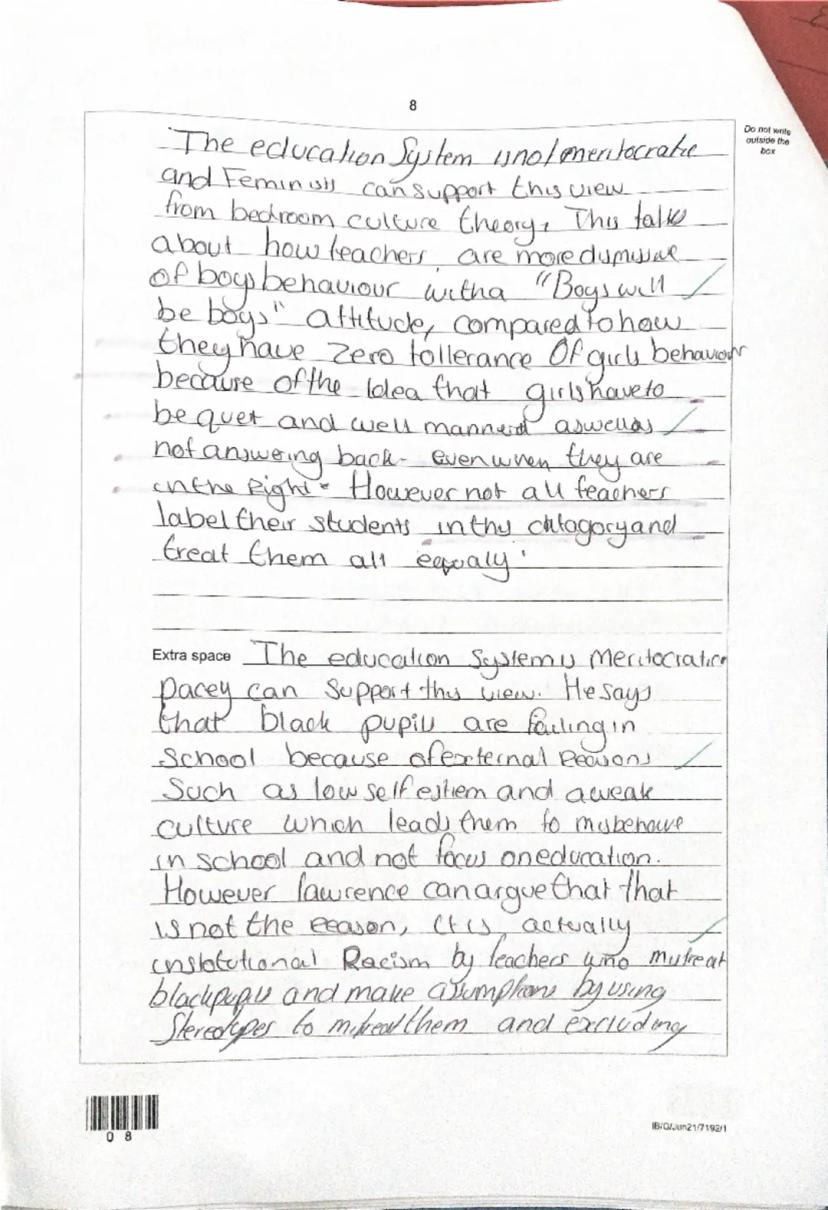 8
Do not write
outside the
box
The education System is not meritocratic
and Feminists can support this view
from bedroom culture theory. This talks
about how teachers are more dismissive
of boys behaviour with a "Boys will
be boys" attitude, compared to how
they have zero tollerance Of girls behaviour
because of the Idea that girls have to
be quet and well mannerd aswell as
not answering back - even when they are
in the Right - However not all teachers
label their students in this catagory and
treat them all equaly.
Extra space The education System is Meritocratic
pacey can support this view. He says
that black pupils are failing in
School because of external Reasons
Such as low self estiem and a weak
culture which leads them to misbehave
in school and not focus on education.
However lawrence can argue that that
is not the reason, it is actually
institutional Racism by teachers who mistreat
black pupils and make assumptions by using
Stereotypes to mistreat them and excluding
0 8
IB/G/Jun21/7192/1